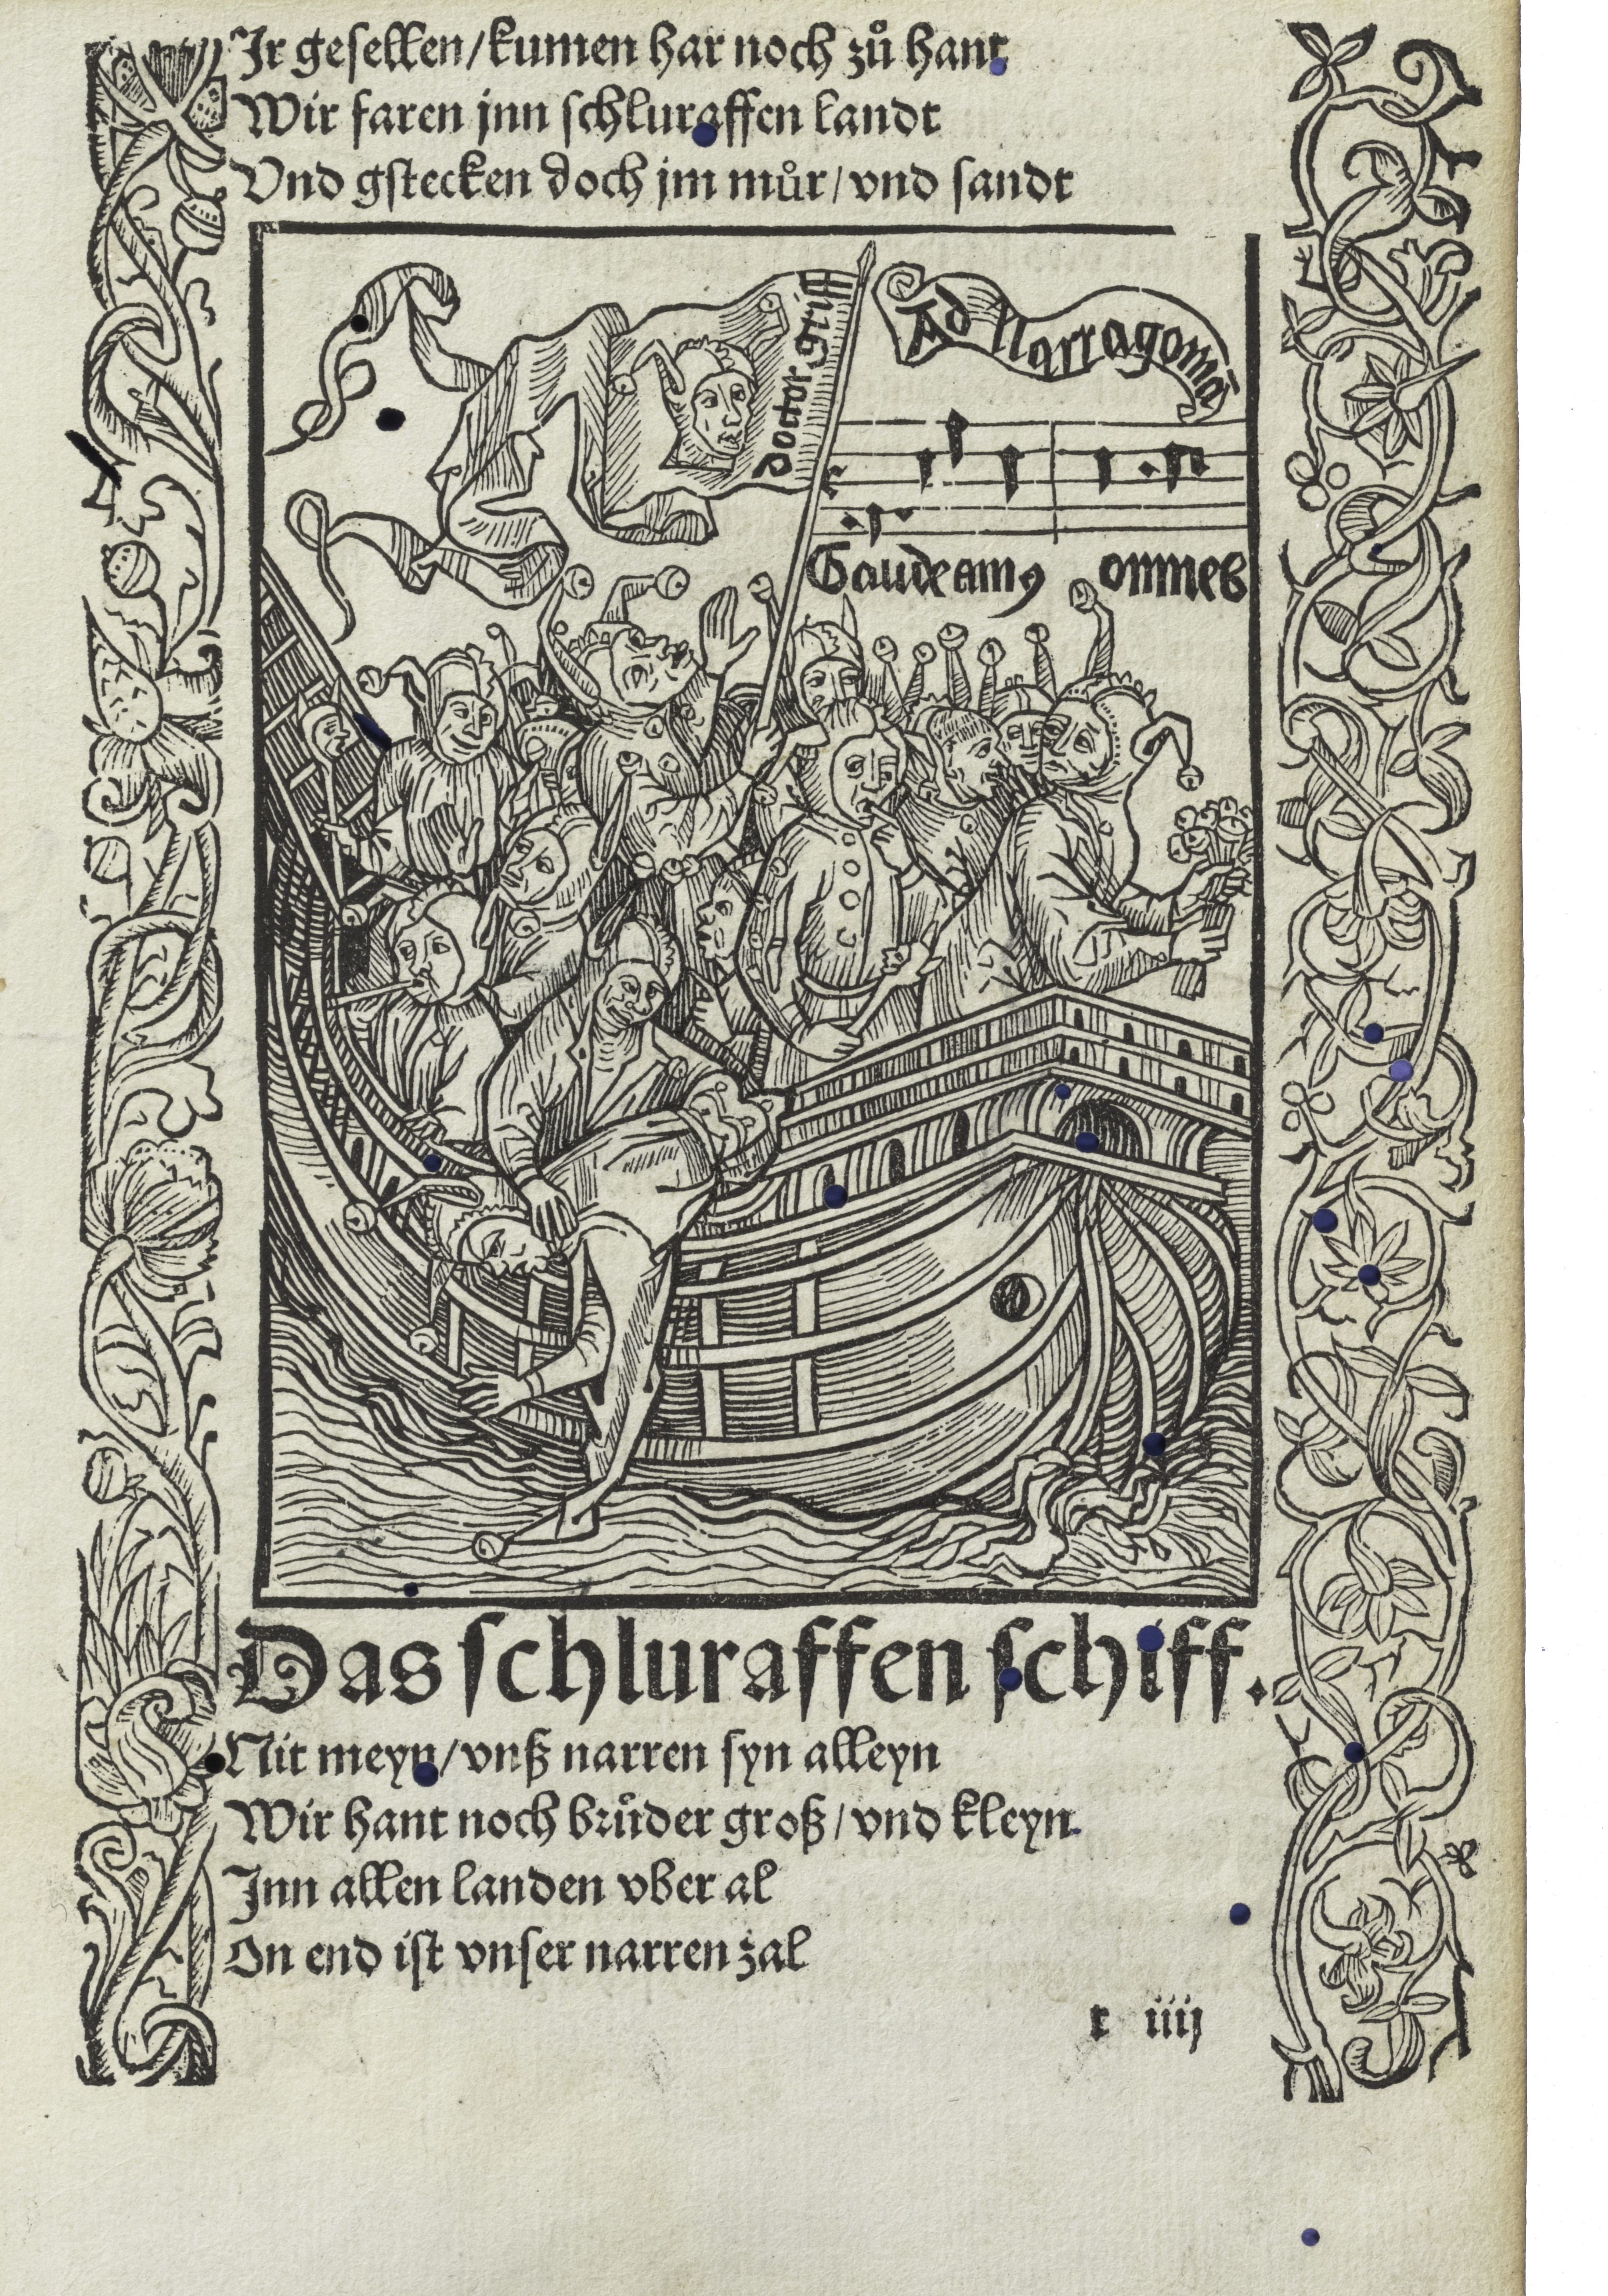 Jr gesellen/kumen har noch zuͦ hant
Wir faren jnn schluraffen landt
Vnd gstecken doch jm muͦr/vnd sandt
Ad Narragoniã
doctor griff
Gaudeamꝯ omnes
Das schluraffen schiff.
Nit meyn/vnß narren syn alleyn
Wir hant noch bruͦder groß/vnd kleyn.
Jnn allen landen vber al
On end ist vnser narren zal
t iiij